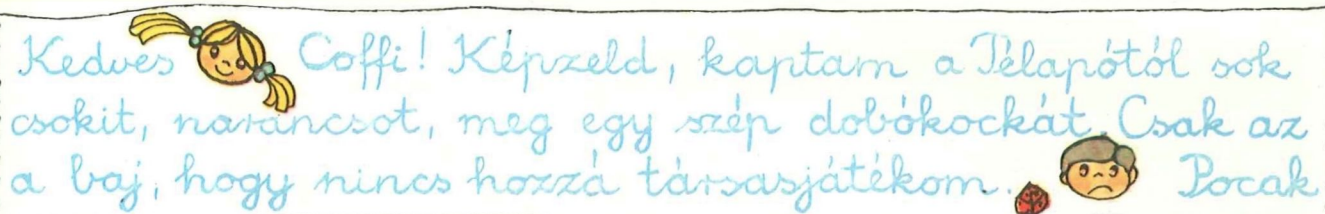 Kedves Coffi! Képzeld, kaptam a Télapótól sok
csokit, narancsot, meg egy szép dobókockát. Csak az
a baj, hogy nincs hozzá társasjátékom. Pocak